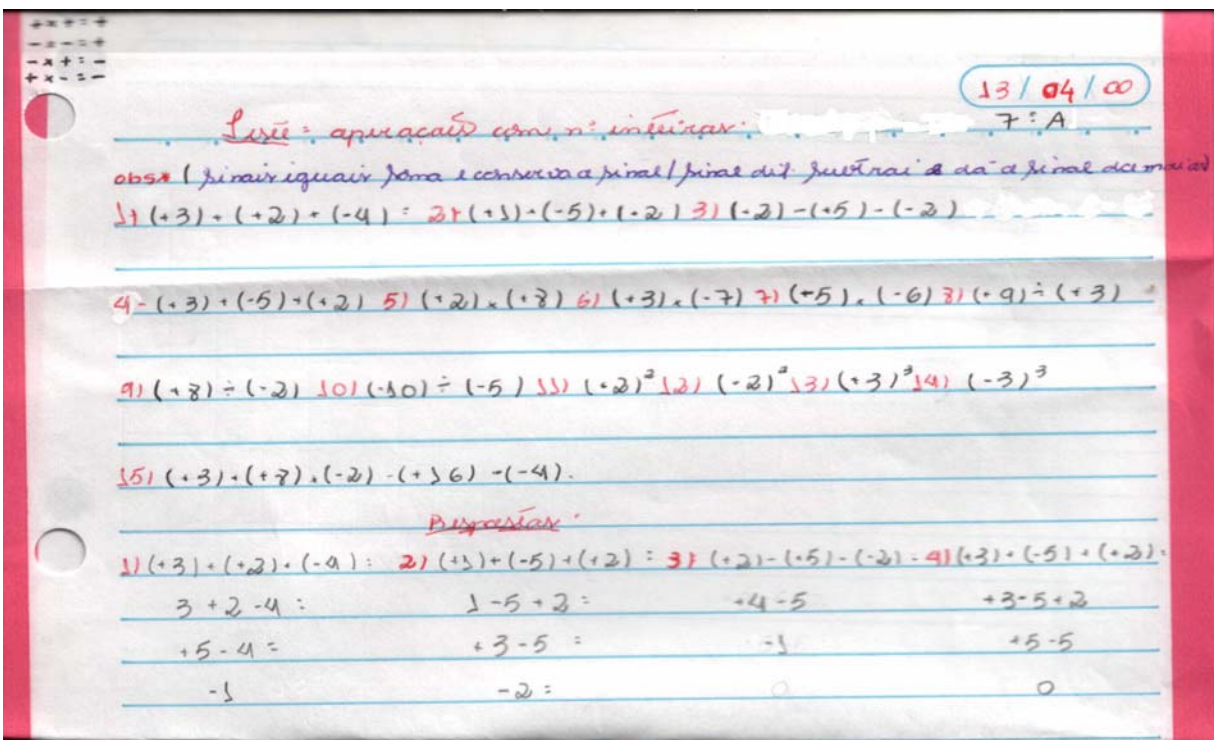 + x + = +
- x - = +
- x + = -
+ x - = -
13/04/00
7ª A
operaçois com nº inteiros.
obs* ( sinais iguais soma e conserva o sinal / sinal dif. subtrai e dá o sinal da maior
1) (+3) + (+2) + (-4) = 2) (+1) + (-5) + (+2) 3) (+2) - (+5) - (-2)
4 - (+3) + (-5) + (+2) 5) (+2) x (+8) 6) (+3) x (-7) 7) (+5) x (-6) 8) (+9) ÷ (+3)
9) (+8) ÷ (-2) 10) (-10) ÷ (-5) 11) (+2)² 12) (-2)² 13) (+3)³ 14) (-3)³
15) (+3) + (+8) + (-2) - (+16) - (-4).
Respostas.
1) (+3) + (+2) + (-4) = 2) (+1) + (-5) + (+2) = 3) (+2) - (+5) - (-2) = 4) (+3) + (-5) + (+2) =
3 + 2 - 4 = 1 - 5 + 2 = +4 - 5 +3 - 5 + 2
+5 - 4 = +3 - 5 = -1 +5 - 5
-1 -2 = 0